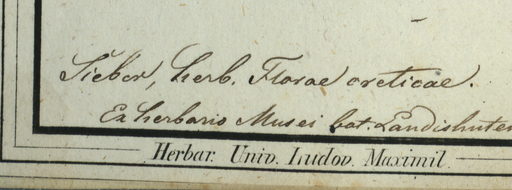 Sieber, herb. Florae creticae.
Ex herbario Musei bot. Landishuten
Herbar. Univ. Ludov. Maximil.